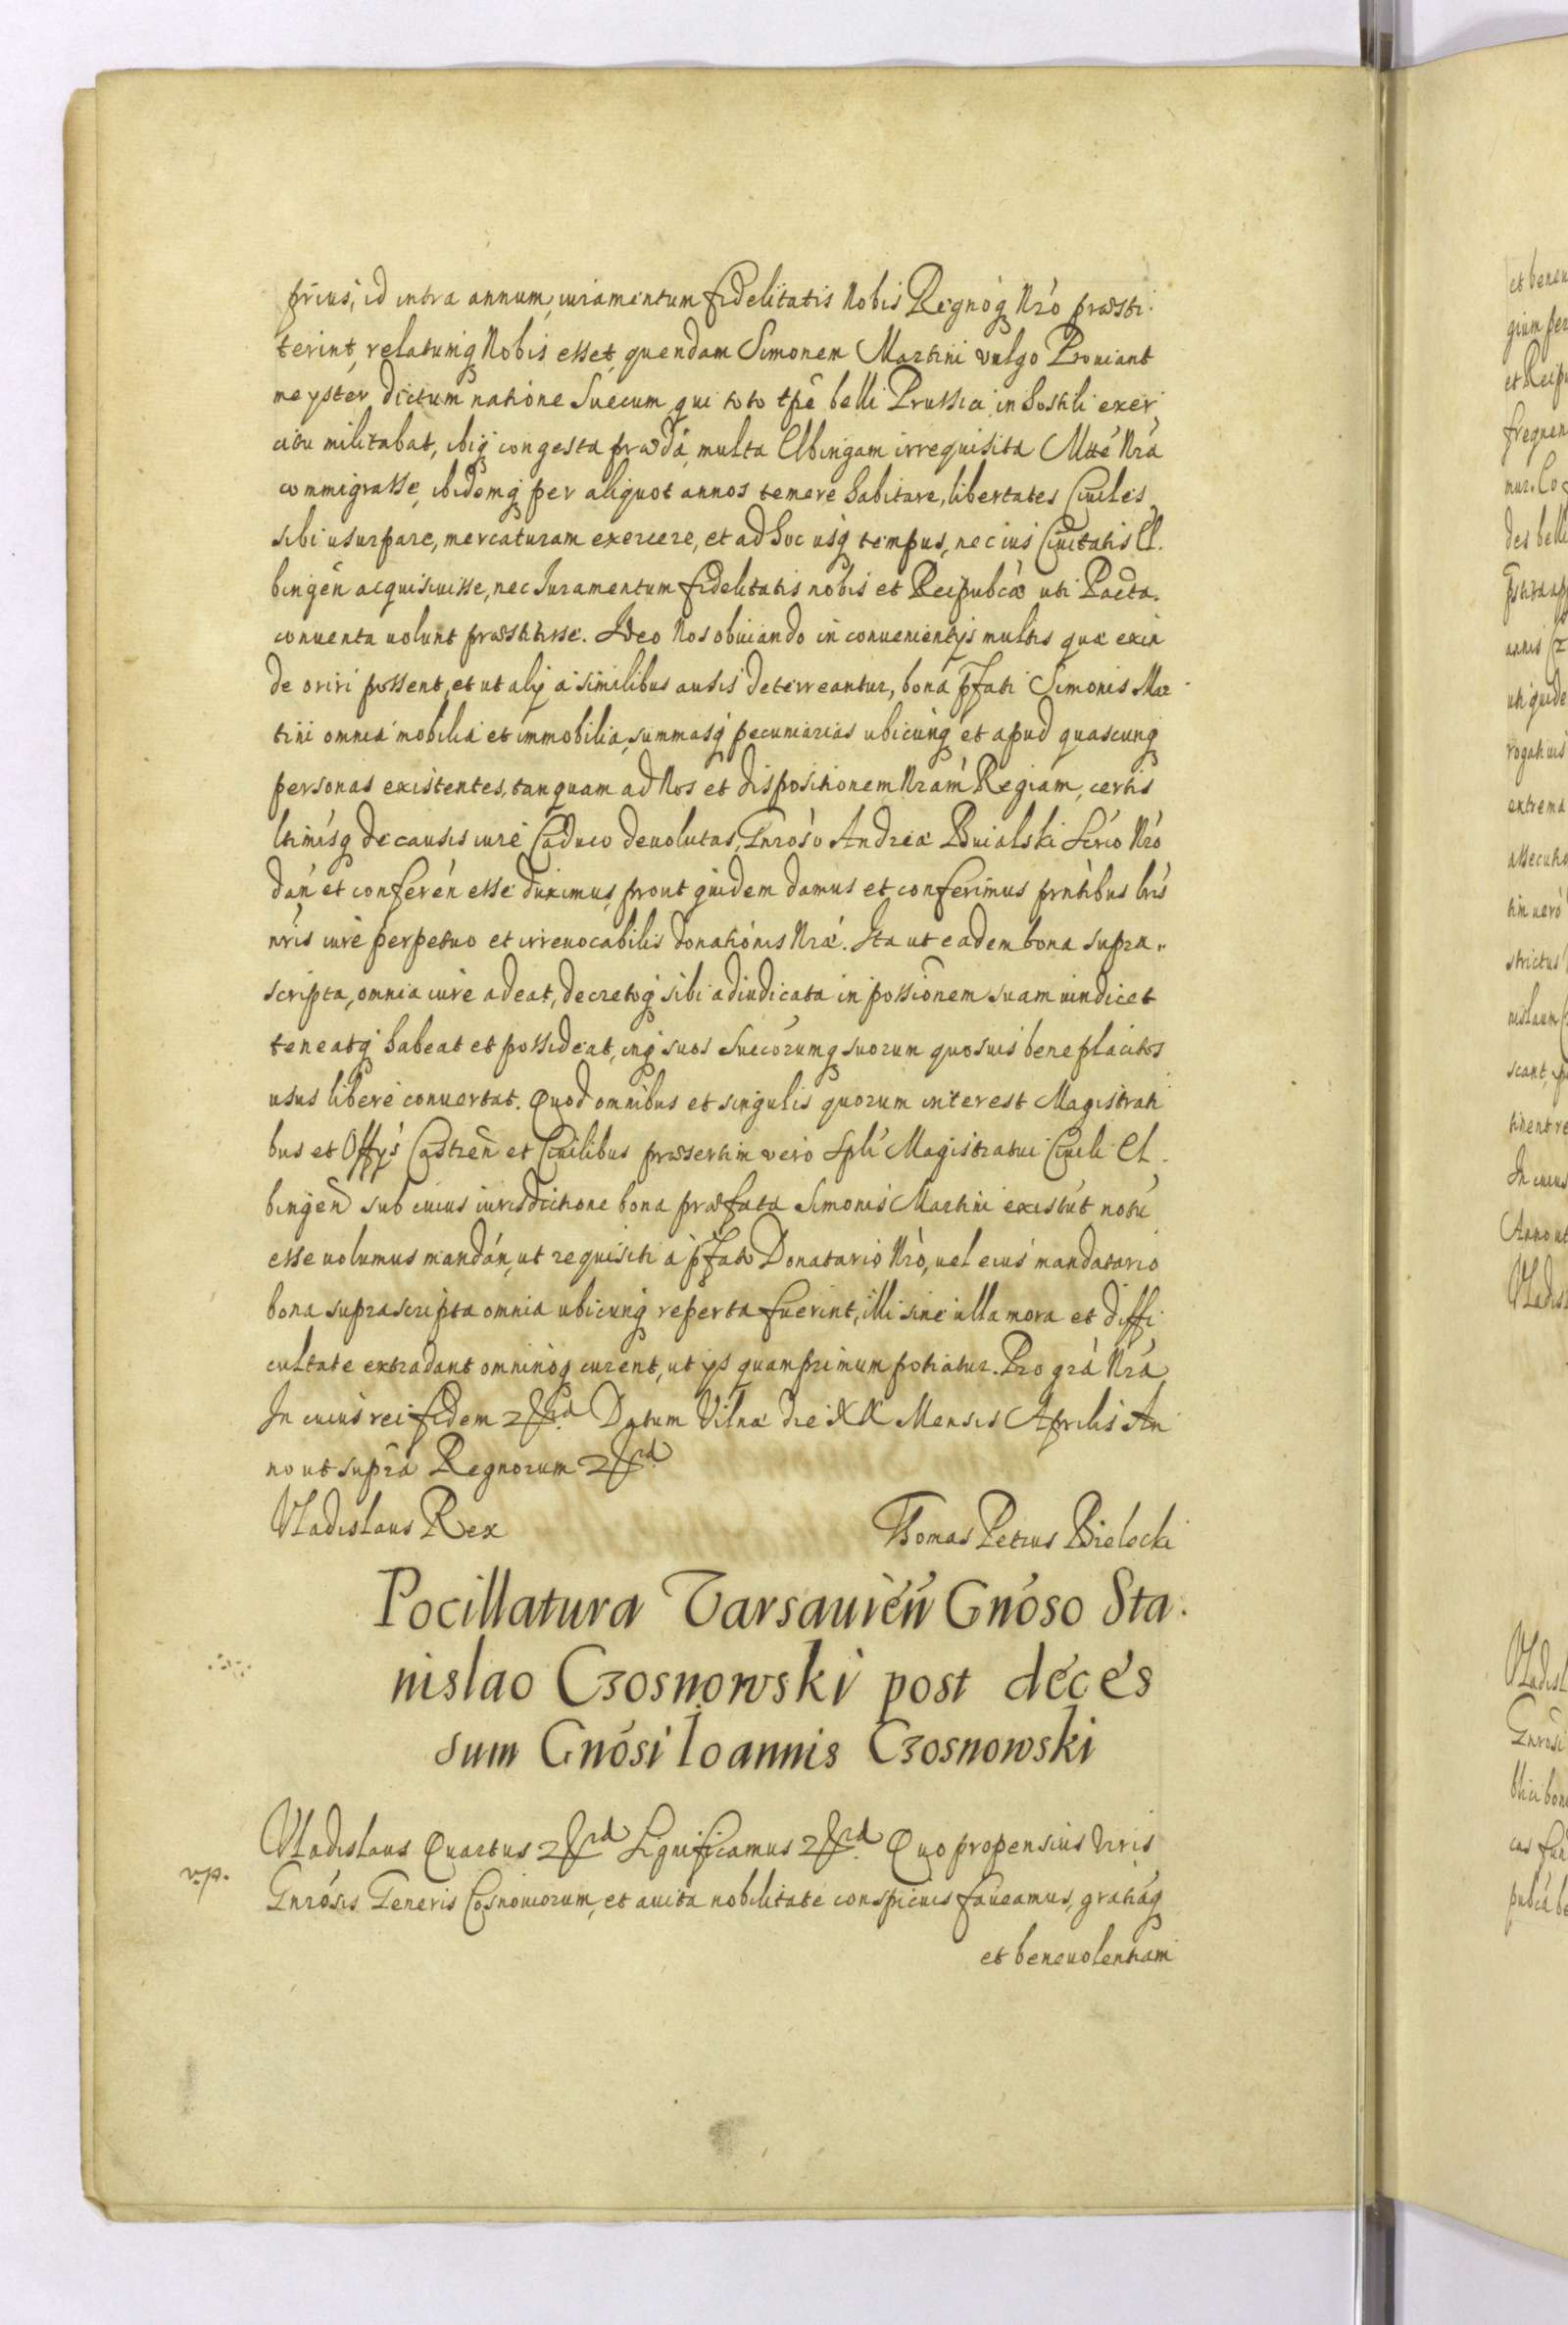 prius, id intra annum, iuramentum fidelitatis Nobis Regnoq́ Nró præsti
terint, relatumq́ Nobis esset, quendam Simonem Martini vulgo Prouiant
meyster dictum natione Suecum, qui toto tpé belli Prussici in hostili exer
citu militabat, ibiq́ congesta prædá multa Elbingam irrequisita Mtté Nrá
commigrasse, ibidemq́ per aliquot annos temere habitare, libertates Ciuiles
sibi usurpare, mercaturam exercere, et ad hoc usq́ tempus, nec ius Ciuitatis El.
bingeń acquisiuisse, nec Iuramentum fidelitatis nobis et Reipubcæ uti Pacta
conuenta uolunt præstitisse. Ideo Nos obuiando inconuenientijs multis quæ exin
de oriri possent, et ut alij a similibus ausis deterreantur, bona pfati Simonis Mar
tini omnia mobilia et immobilia, summasq́ pecuniarias ubicunq́ et apud quascunq́
personas existentes, tanquam ad Nos et dispositionem Nrám Regiam, certis
ltimisq́ de causis iure Caduco deuolutas, Gnrósó Andreæ Buialski Scrio Nró
dań et conferéń esse duximus, prout quidem damus et conferimus prntibus lrís
nrís iure perpetuo et irreuocabilis donationis Nræ. Ita ut eadem bona supra„
scripta, omnia iure adeat, decretoq́ sibi adiudicata in possionem suam uindicet
teneatq́ habeat et possideat, inq́ suos Succorumq́ suorum quosuis beneplacitos
usus libere conuertat. Quod omnibus et singulis quorum interest Magistrati
bus et Offijs Castreń et Ciuilibus præsertim vero Spli Magistratui Ciuili El.
bingeń sub cuius iurisdictione bona præfata Simonis Martini existút notú
esse uolumus mandáń, ut requisiti à pfato Donatario Nró, uel eius mandatario
bona suprascripta omnia ubicunq́ reperta fuerint, illi sine ulla mora et diffi
cultate extradant omninoq́ curent, ut ijs quamprimum potiatur. Pro grá Nrá
In cuius rei fidem Datum Vilnæ die XX Mensis Aprilis An
no ut supra Regnorum
Vladislaus Rex Thomas Petrus Bielecki
Pocillatura Varsauień Gnóso Sta.
nislao Czosnowski post déces
sum Gnósi Ioannis Czosnowski
Vladislaus Quartus Significamus Quo propensius Viris
v.p.
Gnrósis Generis Cosnouiorum, et auita nobilitate conspicuis faueamus, gratiáq́
et beneuolentiam